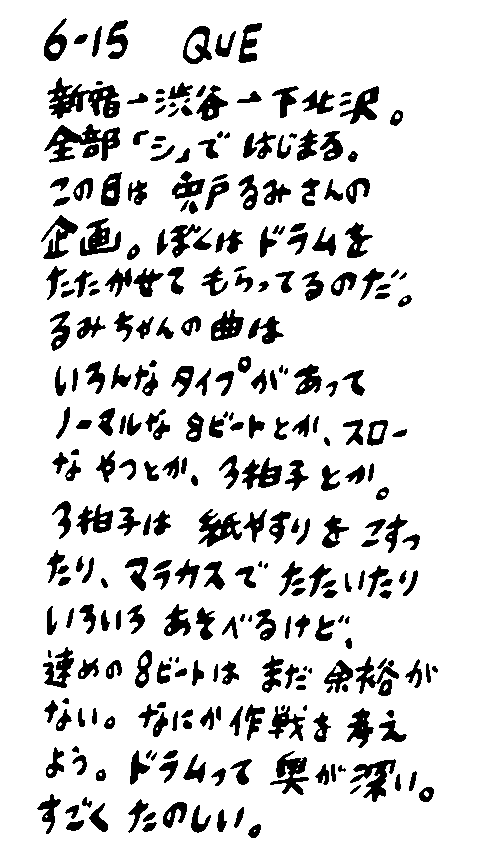 6-15 QUE
新宿→渋谷→下北沢。
全部「シ」ではじまる。
この日は宍戸るみさんの
企画。ぼくはドラムを
たたかせてもらってるのだ。
るみちゃんの曲は
いろんなタイプがあって
ノーマルな8ビートとか、スロー
なやつとか、3拍子とか。
3拍子は紙やすりをこすっ
たり、マラカスでたたいたり
いろいろあそべるけど、
速めの8ビートはまだ余裕が
ない。なにか作戦を考え
よう。ドラムって奥が深い。
すごくたのしい。